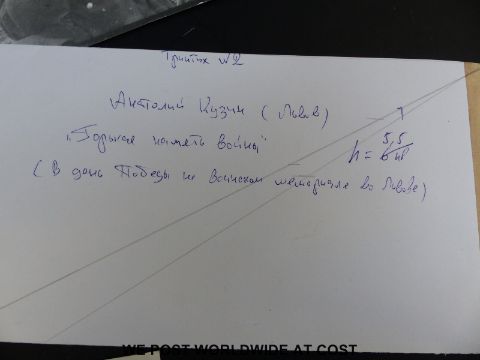 Триптих №2
Анатолий Кузин (Львов)
"Горькая память войны"
h = 5,5
6 кв
(В день Победы на Воинском мемориале во Львове)
WE POST WORLDWIDE AT COST